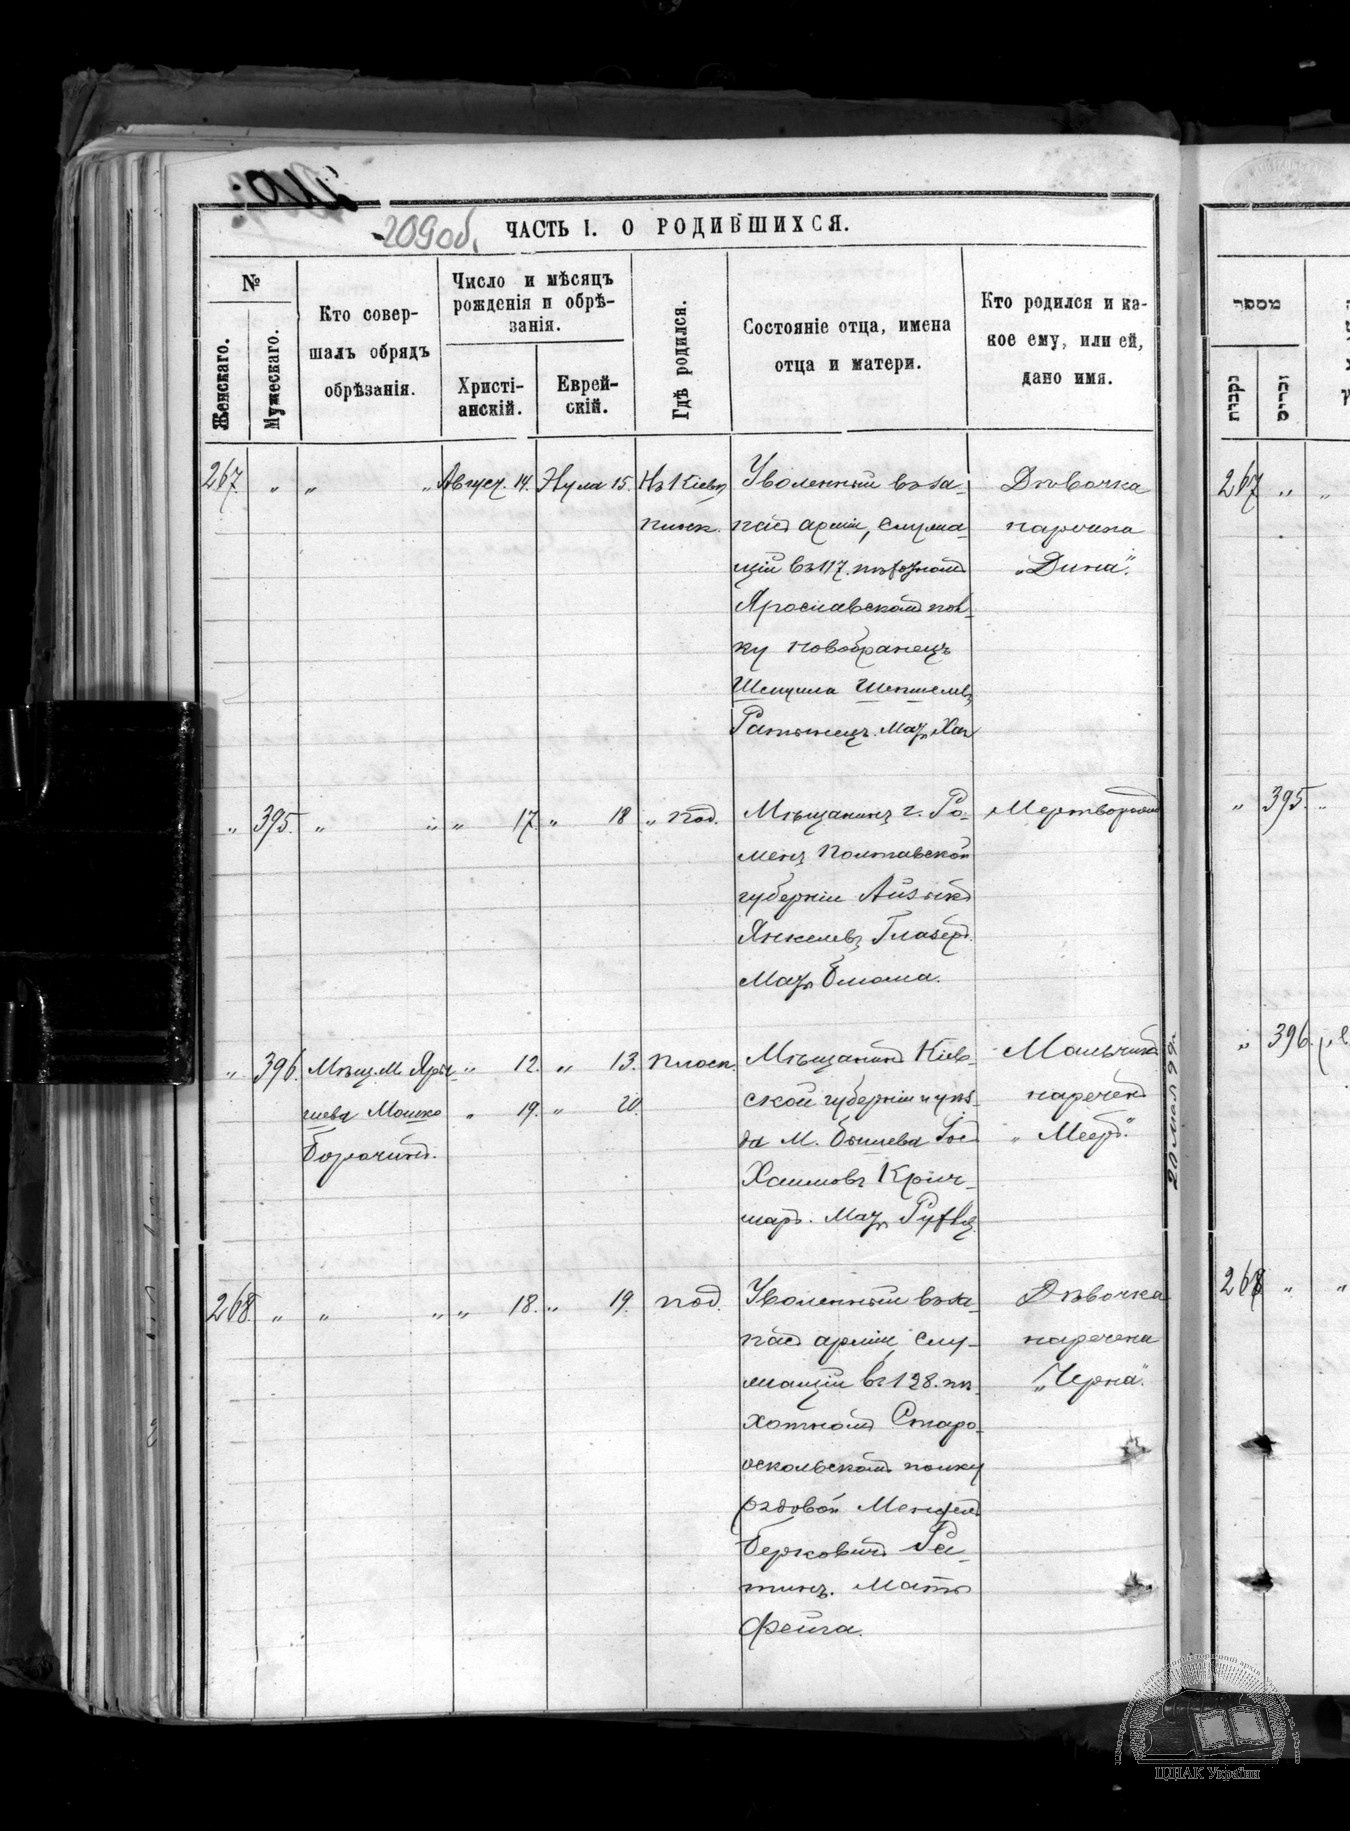 210.
209об.
ЧАСТЬ I. О РОДИВШИХСЯ.
№
Женскаго.
Мужескаго.
Кто совер-
шалъ обрядъ
обрѣзанія.
Число и мѣсяцъ
рожденія и обрѣ-
занія.
Христі-
анскій.
Еврей-
скій.
Гдѣ родился.
Состояніе отца, имена
отца и матери.
Кто родился и ка-
кое ему, или ей,
дано имя.
267 " " " Август. 14. Нула 15. Въ Кіевѣ
плоск.
Уволенный въ за-
пасъ арміи, служа-
щій въ 117. пѣхотномъ
Ярославскомъ пол-
ку новобранецъ
Шепшелевъ
Ратынецъ. Мать Хая
Дѣвочка
наречена
„Дина".
" 395. " " " 17. " 18 " под.
Мѣщанинъ г. Ро-
менъ Полтавской
губерніи Айзикъ
Янкелевъ Глазеръ.
Мать Блюма.
Мертворожд.
" 396. Мѣщ. М.
Мошко
" 12. " 13. плоск.
" 19. " 20.
Мѣщанинъ Кіев-
ской губерніи и уѣз-
да М. Бышева
Хаимовъ Крич-
маръ. Мать
Мальчикъ
нареченъ
„Мееръ".
268. " " " " 18. " 19. под.
Уволенный въ за-
пасъ арміи слу-
жащій въ 128. пѣ-
хотномъ Старо-
оскольскомъ полку
рядовой Мендель
Берковичъ Ра-
тинъ. Мать
Фейга.
Дѣвочка
наречена
„Черна".
מספר
נקבות
זכרים
267 " "
" 395. "
" 396.
268 " "
ЦДІАК України